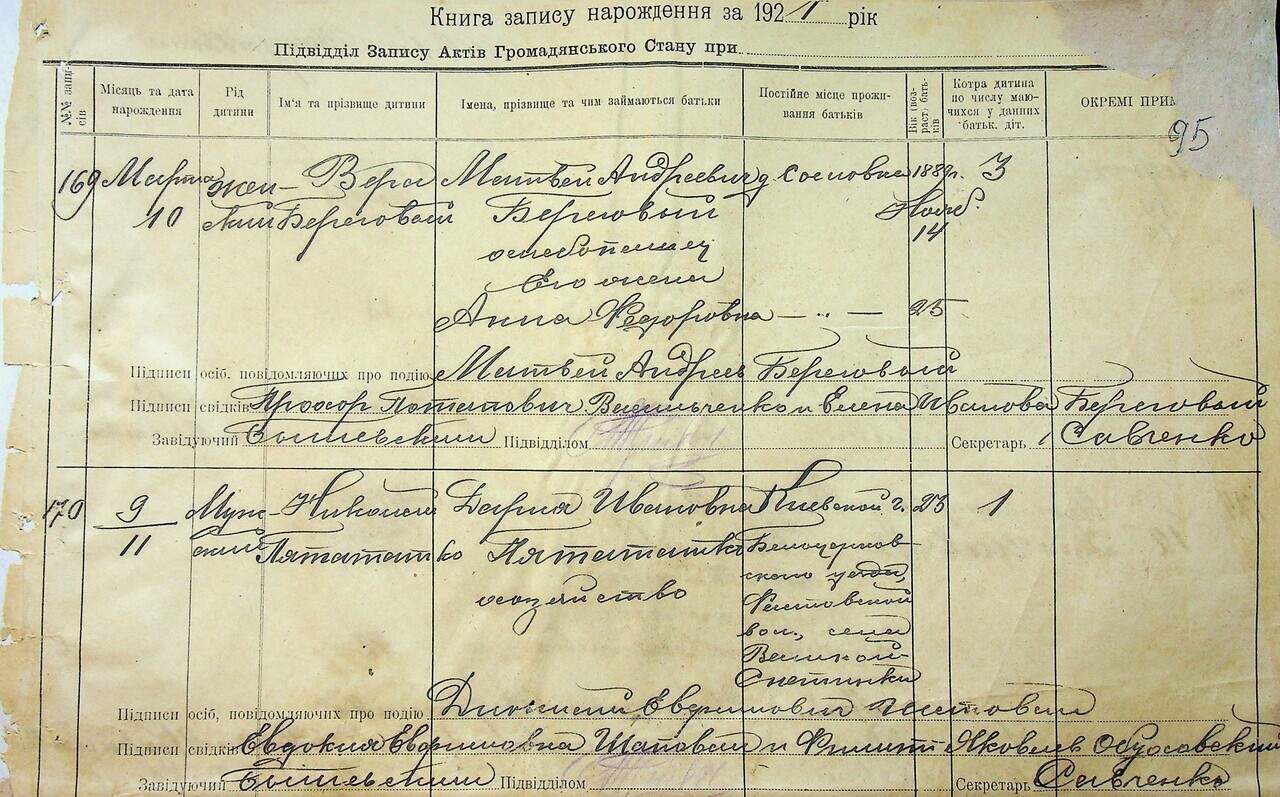 Книга запису нарождення за 1921 рік
Підвідділ Запису Актів Громадянського Стану при
№№ запи-
сів
Місяць та дата
нарождення
Рід
дитини
Ім'я та прізвище дитини
Імена, прізвище та чим займаються батьки
Постійне місце прожи-
вання батьків
Вік (воз-
раст) бать-
ків
Котра дитина
по числу маю-
чихся у данних
батьк. діт.
ОКРЕМІ ПРИМ
95
169 Марта жен- Вера Матвей Андреевич д. Сосновка 188 г. 3
10 ский Береговой Береговый Нояб.
14
Его жена
Анна Федоровна — „ — 25
Підписи осіб, повідомляючих про подію Матвей Андреев Береговой
Підписи свідків Прохор Потапович Васильченко и Елена Иванова Береговой
Завідуючий Підвідділом Секретарь Савченко
170 9 Муж- Николай Дария Ивановна Киевской г. 23 1
11 ский Пятататько Пятататько Белоцерков-
ского уезда,
хозяйство Фастовской
вол., села
Великой
Снетинки
Підписи осіб, повідомляючих про подію Дионисий Евфимович Шаповал
Підписи свідків Евдокия Евфимовна Шаповал и Филипп Яковлев
Завідуючий Підвідділом Секретарь Савченко